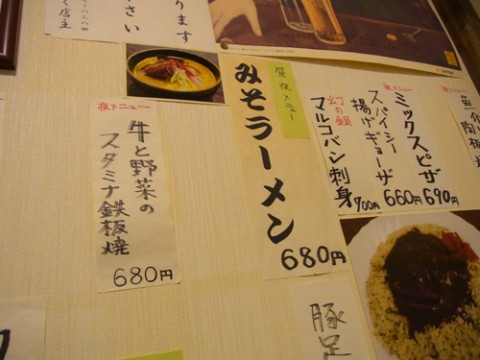 ります
ださい
く店主
夜メニュー
牛と野菜の
スタミナ鉄板焼
680円
昼夜メニュー
みそラーメン
680円
夜メニュー
ミックスピザ
690円
スパイシー
揚げギョーザ
660円
幻の鍋
マルコバン刺身
700円
豚足